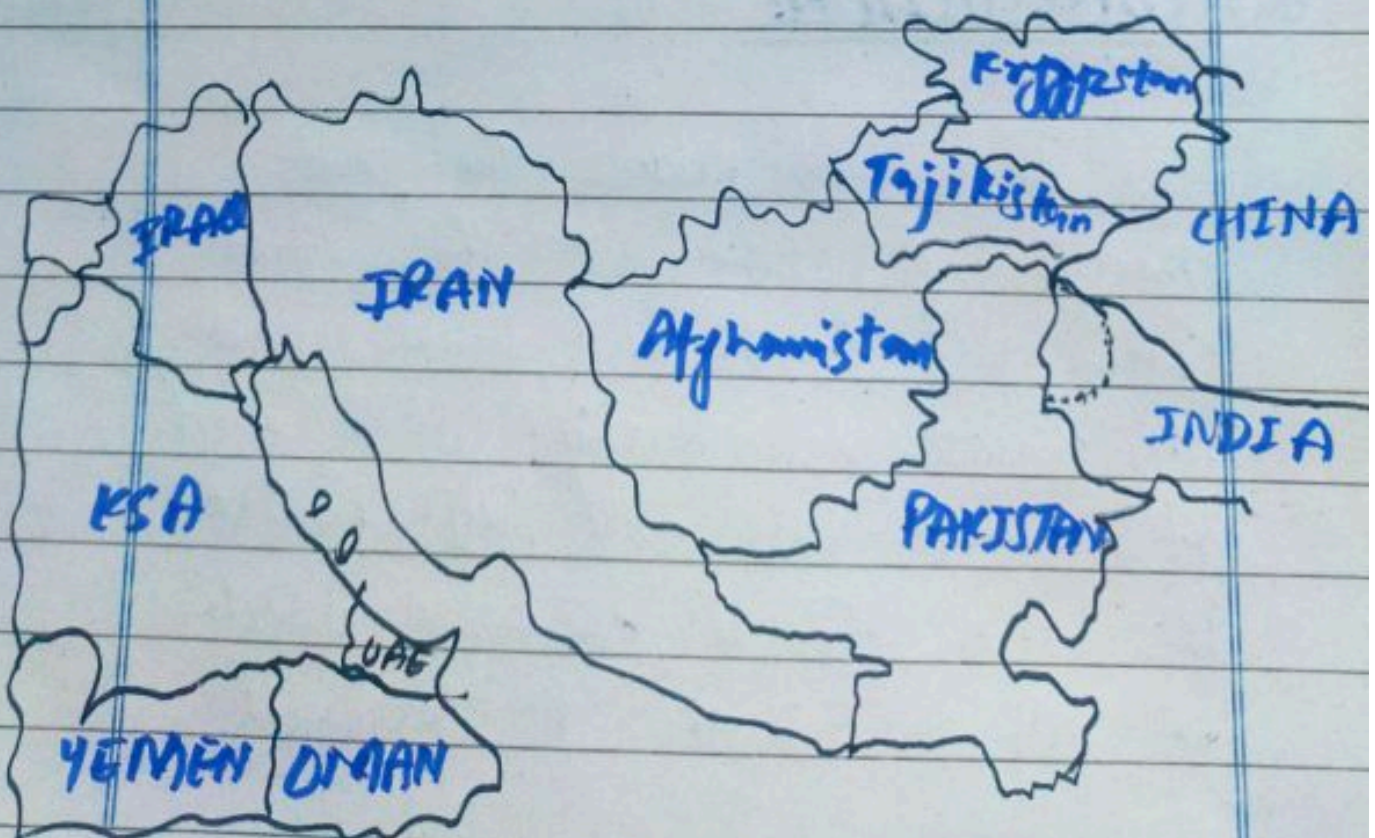 Kyrgyzstan
Tajikistan
CHINA
IRAQ
IRAN
Afghanistan
INDIA
KSA
PAKISTAN
UAE
YEMEN
OMAN